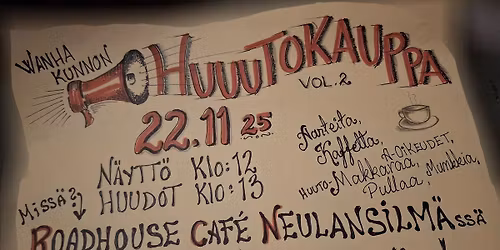 WANHA
KUNNON
HUUUTOKAUPPA
VOL.2
22.11 25
NÄYTTÖ KLO:12
HUUDOT KLO:13
Aarteita,
Kaffetta,
HUUTO
A-OIKEUDET,
Makkaraa,
Pullaa, Munkkia,
Missä?
ROADHOUSE CAFÉ NEULANSILMÄSSÄ